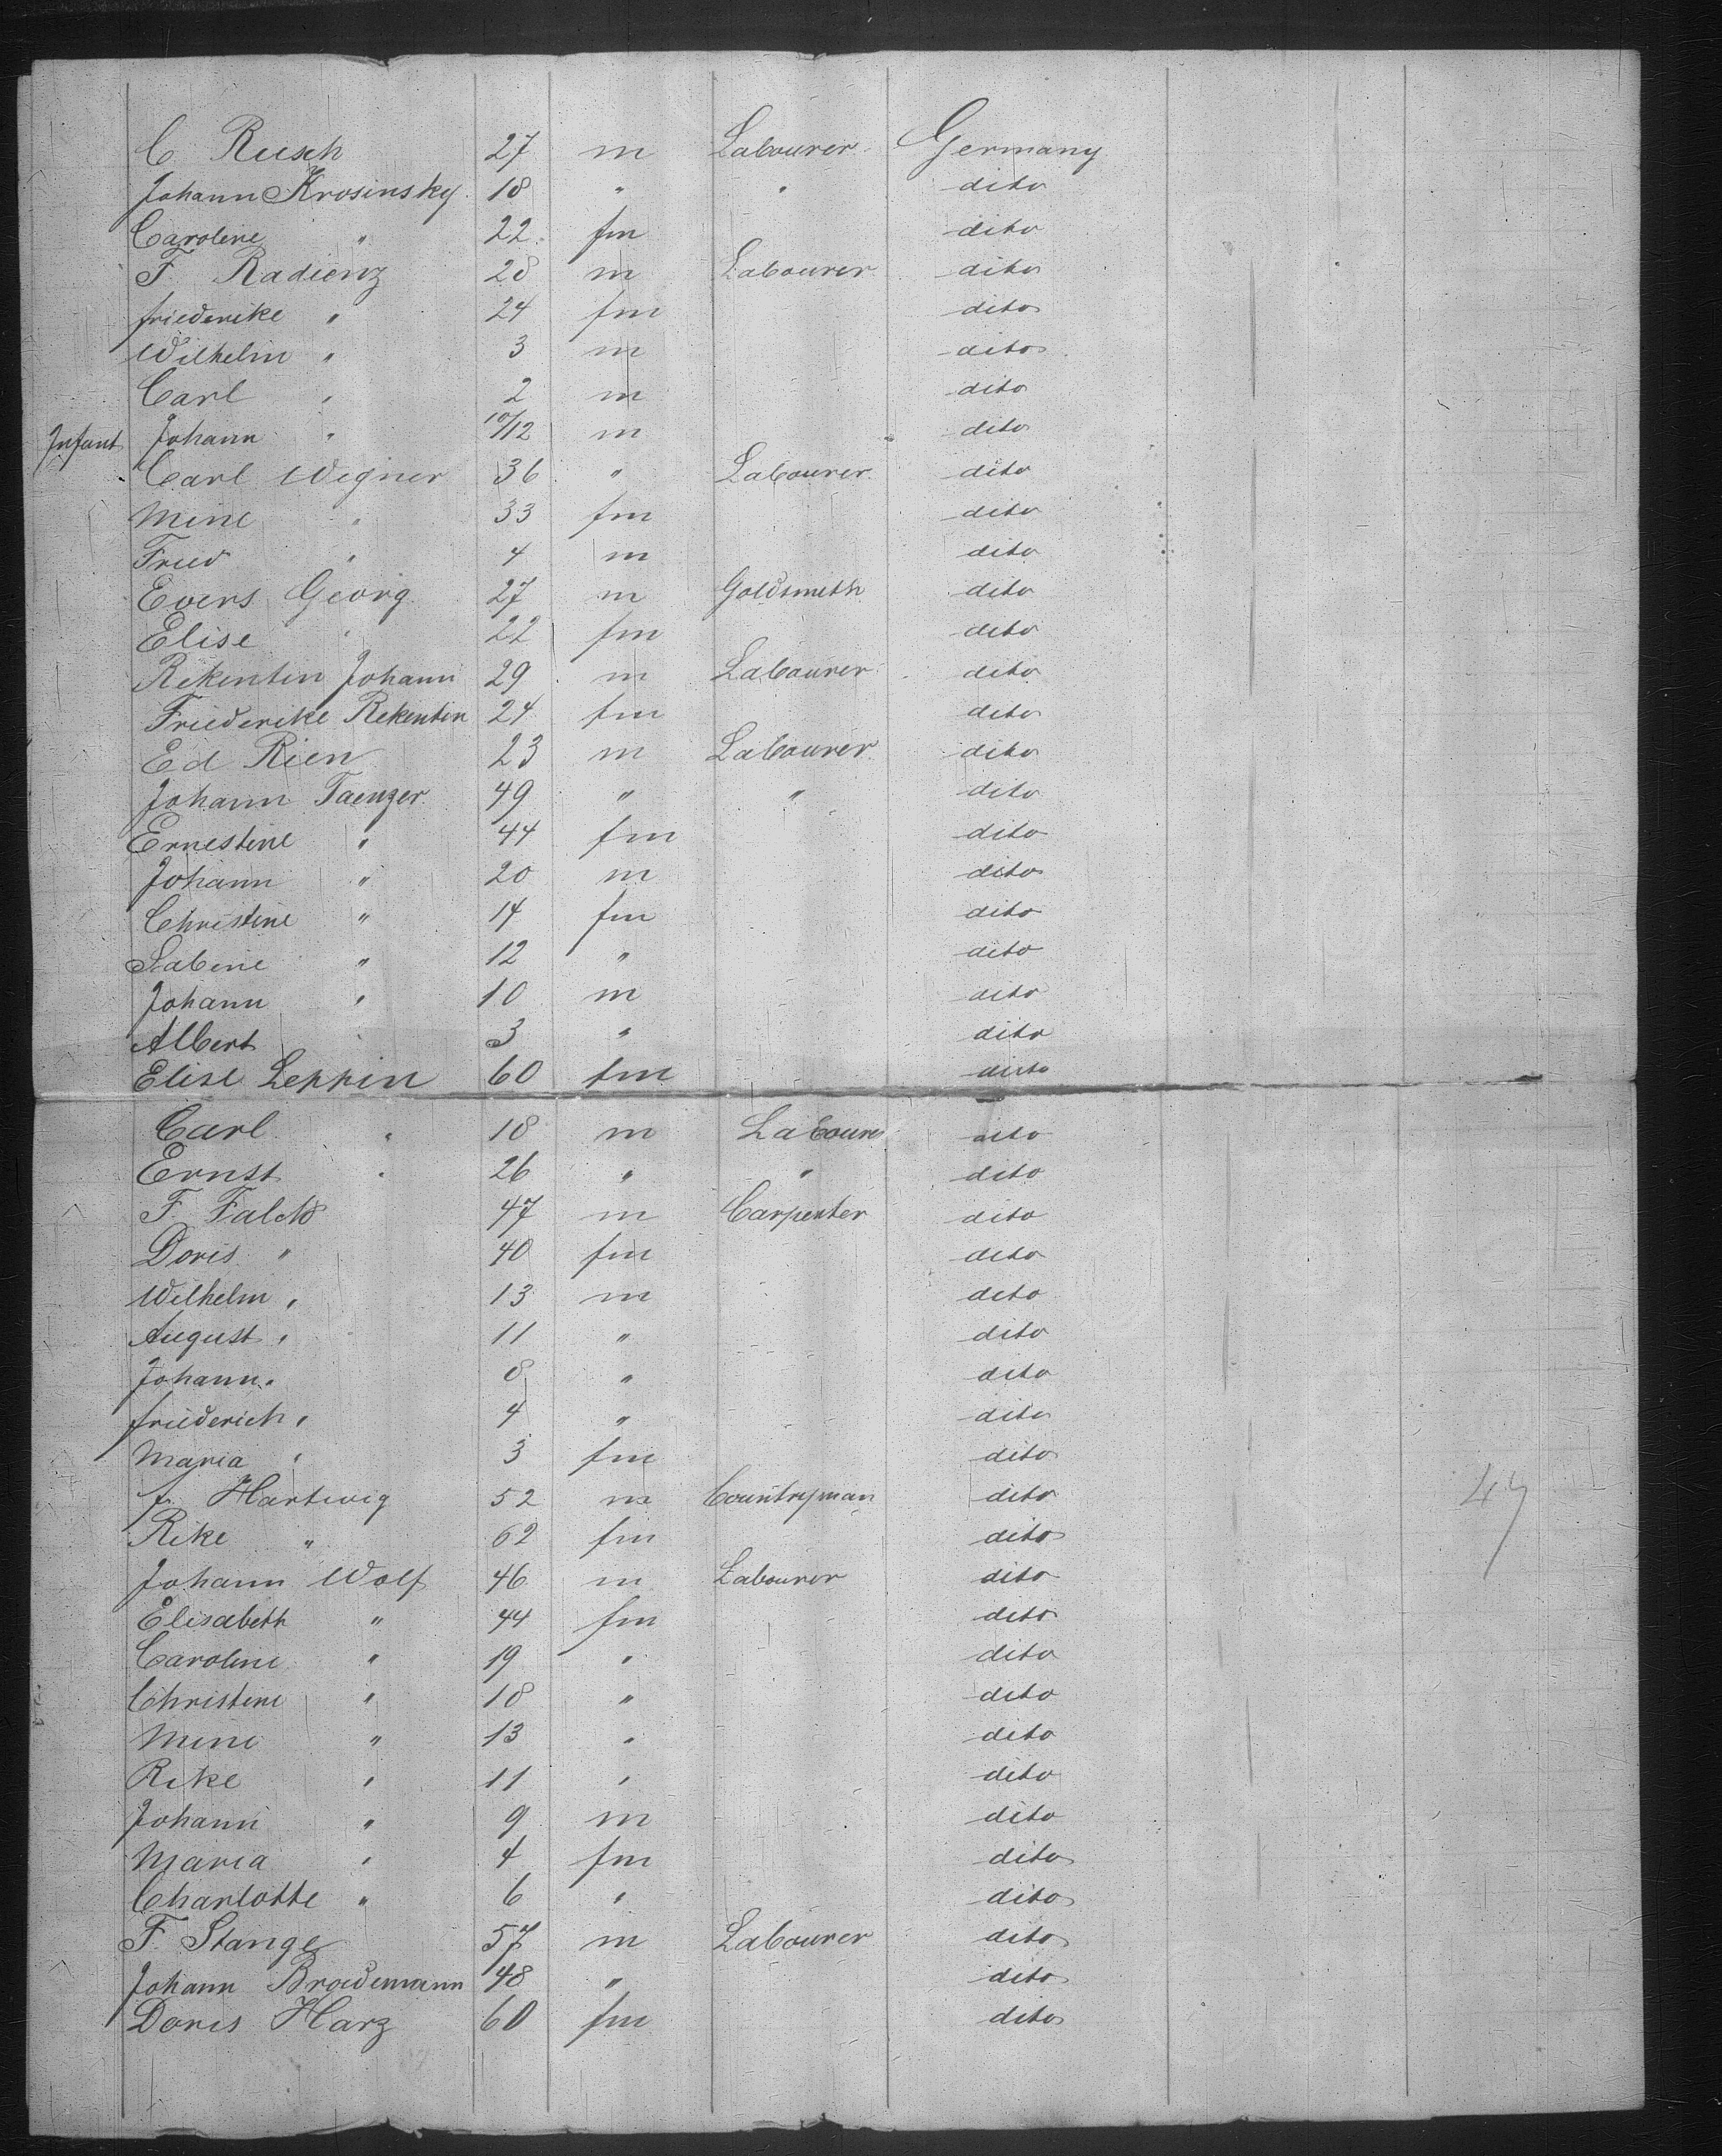 C Rusch 27 m Labourer Germany
Johann Krosinsky 18 " " dito
Caroline " 22 fm dito
F Radienz 28 m Labourer dito
friederike " 24 fm dito
Wilhelm " 3 m dito
Carl " 2 m dito
Infant Johann " 10/12 m dito
Carl Wegner 36 " Labourer dito
Mine " 33 fm dito
Fried " 4 m dito
Evers Georg 27 m Goldsmith dito
Elise " 22 fm dito
Rekentin Johann 29 m Labourer dito
Friederike Rekentin 24 fm dito
Ed Rien 23 m Labourer dito
Johann Taenzer 49 " " dito
Ernestine " 44 fm dito
Johann " 20 m dito
Christine " 14 fm dito
Sabine " 12 " dito
Johann " 10 m dito
Albert " 3 " dito
Elise Leppin 60 fm dito
Carl " 18 m Laboure dito
Ernst " 26 " " dito
F. Falck 47 m Carpenter dito
Doris " 40 fm dito
Wilhelm " 13 m dito
August " 11 " dito
Johann " 8 " dito
friederich " 4 " dito
Maria " 3 fm dito
f. Hartwig 52 m Countryman dito
Rike " 62 fm dito
47
Johann Wolf 46 m Labourer dito
Elisabeth " 44 fm dito
Caroline " 19 " dito
Christine " 18 " dito
Mine " 13 " dito
Rike " 11 " dito
Johann " 9 m dito
Maria " 4 fm dito
Charlotte " 6 " dito
F. Stange 57 m Labourer dito
Johann Broedemann 48 " dito
Doris Harz 60 fm dito